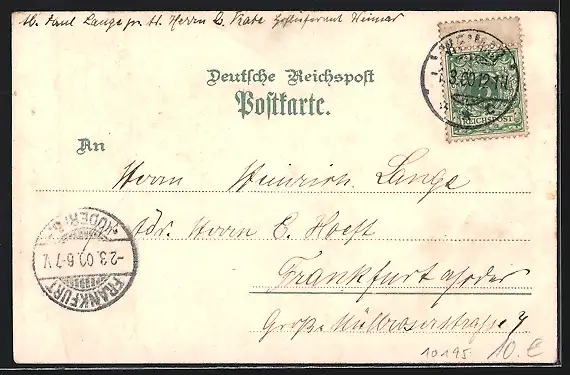 Abs. Paul Lange pr. Adr. Herrn L. Kabe Hoflieferant Weimar
Deutsche Reichspost
Postkarte.
REICHSPOST
An
Herrn Heinrich Lange
Adr. Herrn E. Hoeft
Frankfurt a/oder
Große Müllroserstrasse 7
FRANKFURT
-2.3.00.6-7 V
10195 10.€